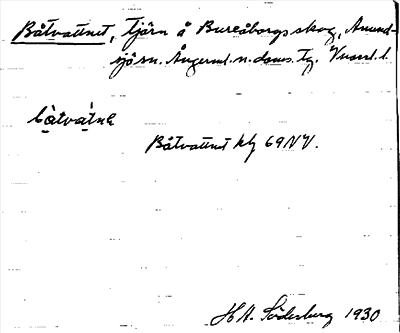 Båtvattnet, tjärn å Bureåborgs skog, Amund-
sjön. Ångerml. n. doms. Tg. Vnorrl. l.
båtvatnə
Båtvattnet kbl 69 NV.
H A. Söderberg 1930